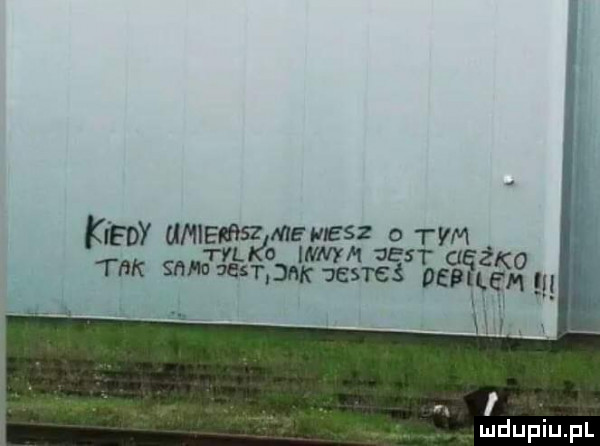 KiEDY UMIERASZ, NIE WIESZ O TYM
TYLKO INNYM JEST CIĘŻKO
TAK SAMO JEST, JAK JESTEŚ DEBILEM !!!
mdupiu.pl